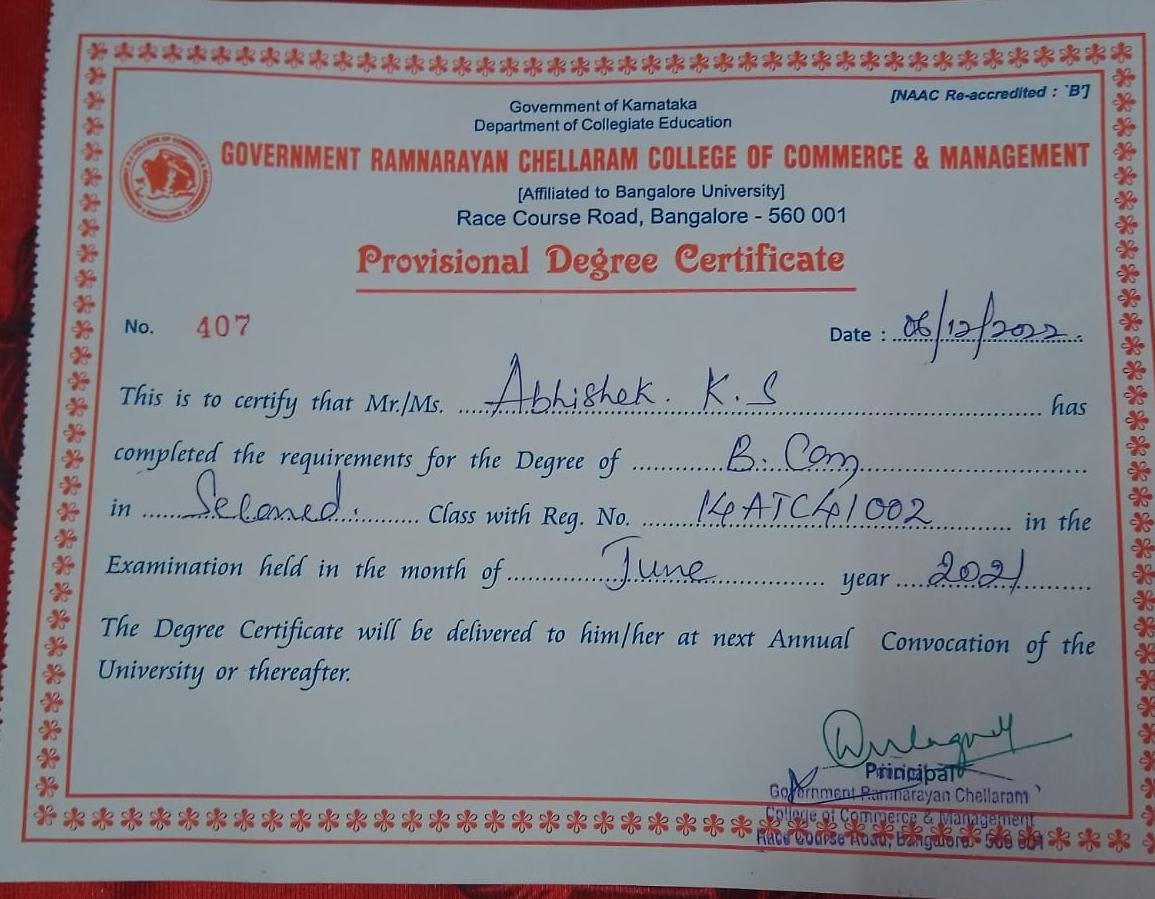 [NAAC Re-accredited : `B']
Government of Karnataka
Department of Collegiate Education
GOVERNMENT RAMNARAYAN CHELLARAM COLLEGE OF COMMERCE & MANAGEMENT
[Affiliated to Bangalore University]
Race Course Road, Bangalore - 560 001
Provisional Degree Certificate
No. 407
Date : 06/12/2022.
This is to certify that Mr./Ms. Abhishek. K.S has
completed the requirements for the Degree of B. Com
in Class with Reg. No. 14ATC41002 in the
Examination held in the month of June year 2021
The Degree Certificate will be delivered to him/her at next Annual Convocation of the
University or thereafter.
Principal
Government Ramnarayan Chellaram
College of Commerce & Management
Race Course Road, Bangalore - 560 001